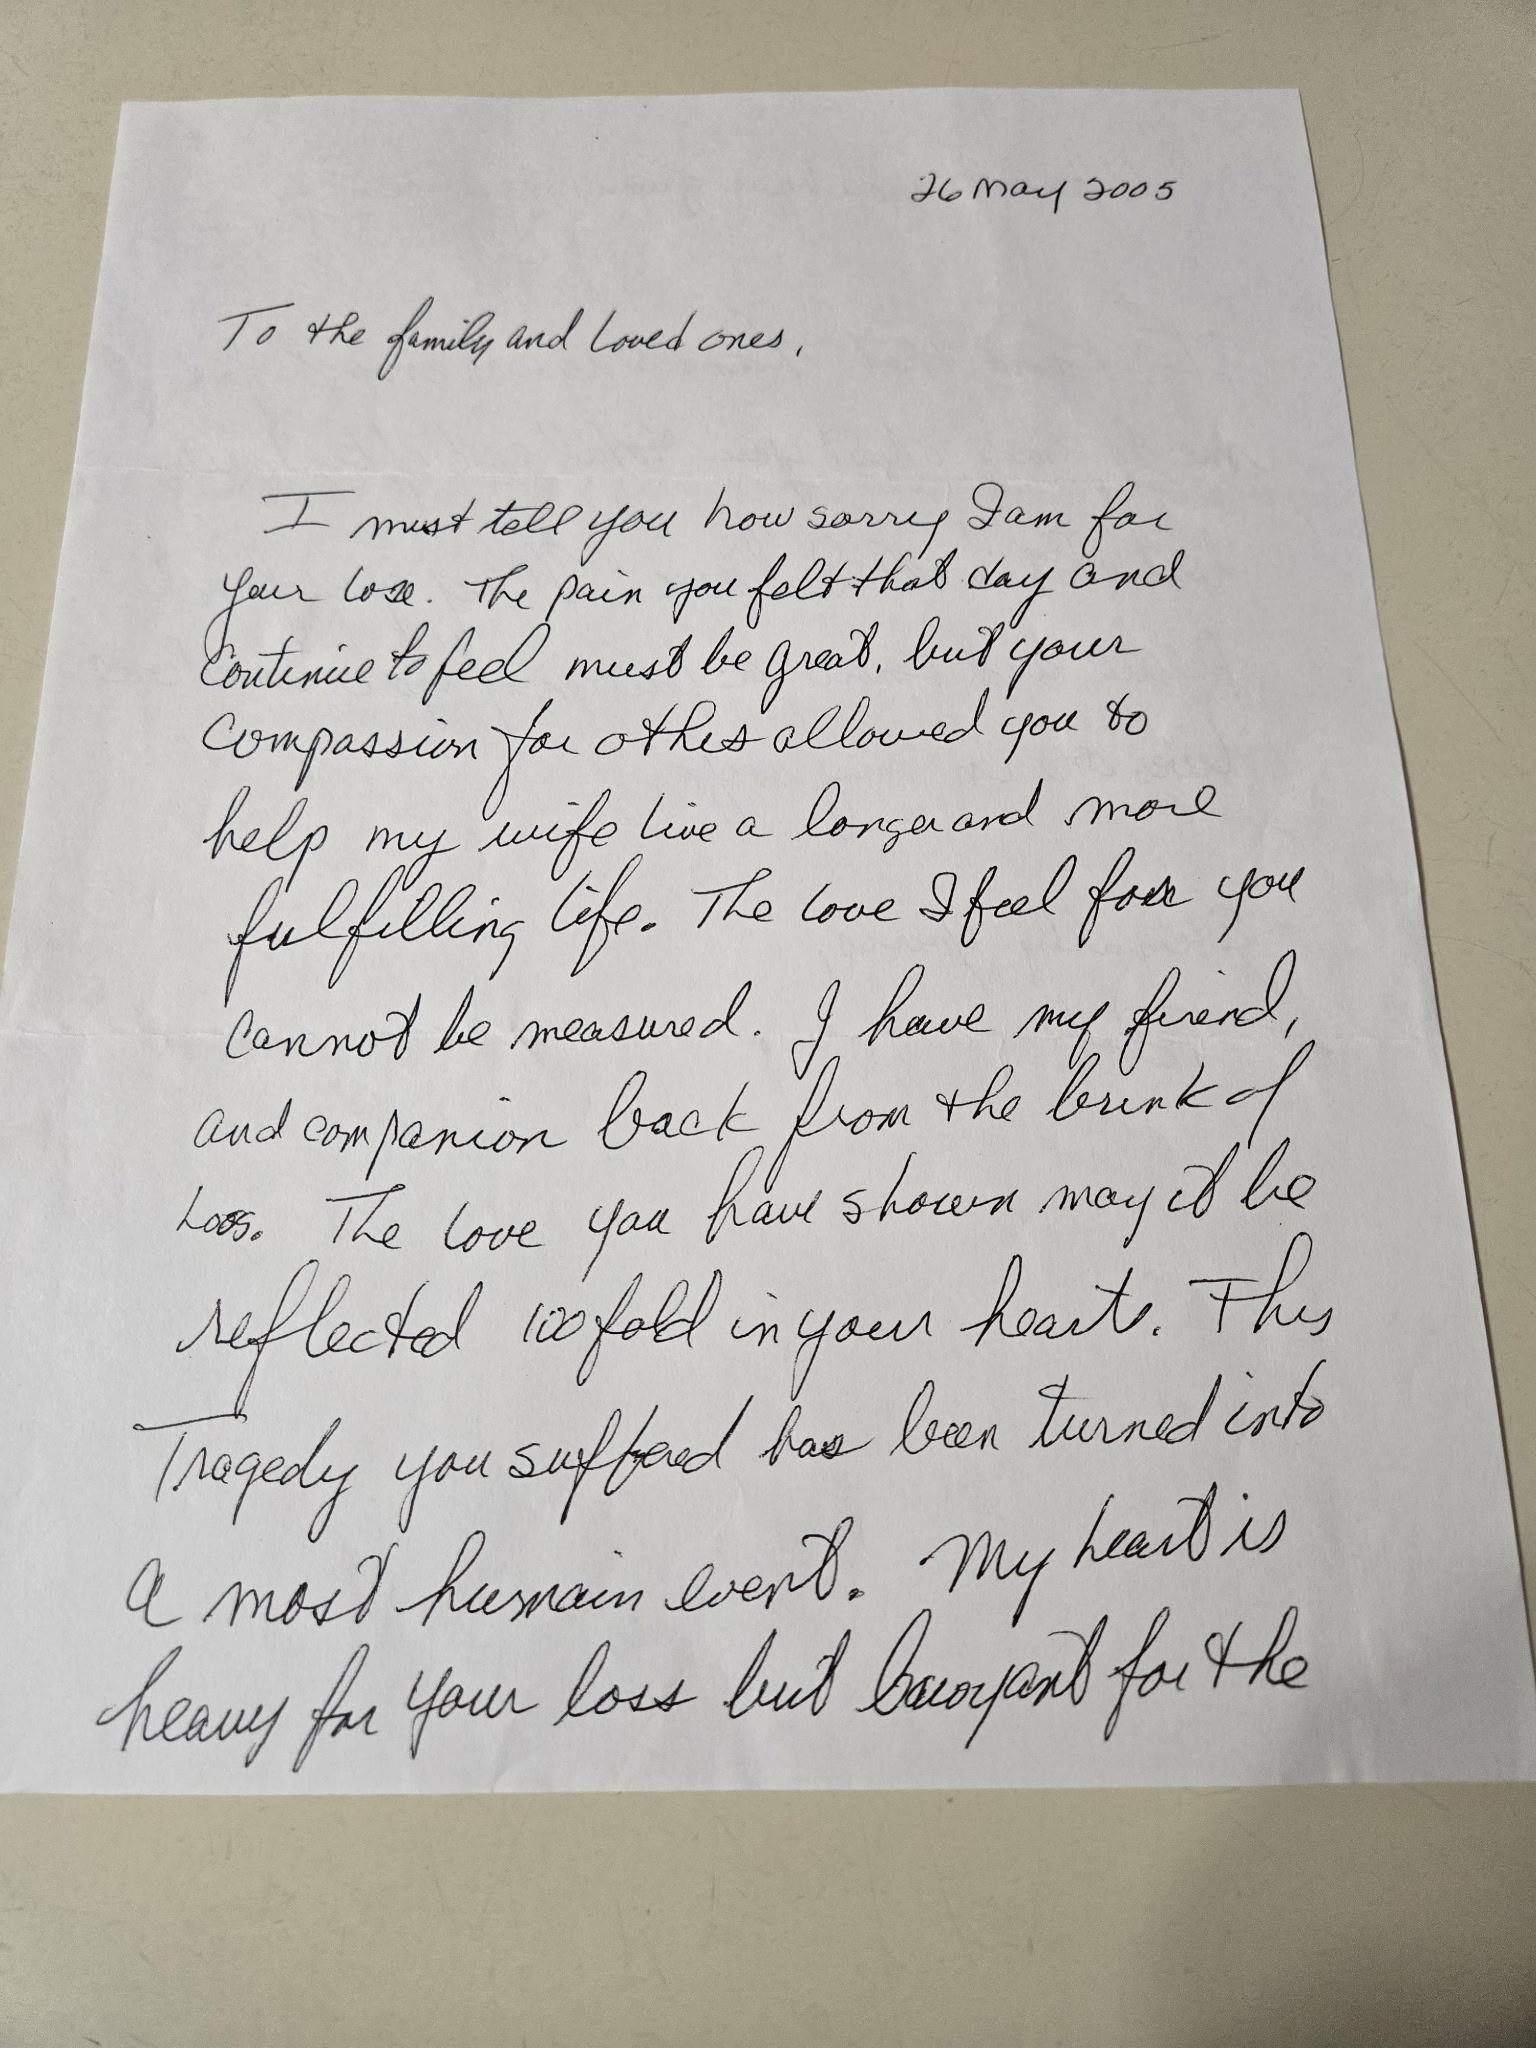 26 May 2005
To the family and Loved ones,
I must tell you how sorry I am for
your lose. The pain you felt that day and
continue to feel must be great, but your
compassion for othes allowed you to
help my wife live a longer and more
fulfilling life. The love I feel for you
cannot be measured. I have my firend,
and companion back from the brink of
loos. The love you have shown may it be
reflected 100 fold in your hearts. This
Tragedy you suffered has been turned into
a most humain event. My heart is
heavy for your loss but buoyant for the